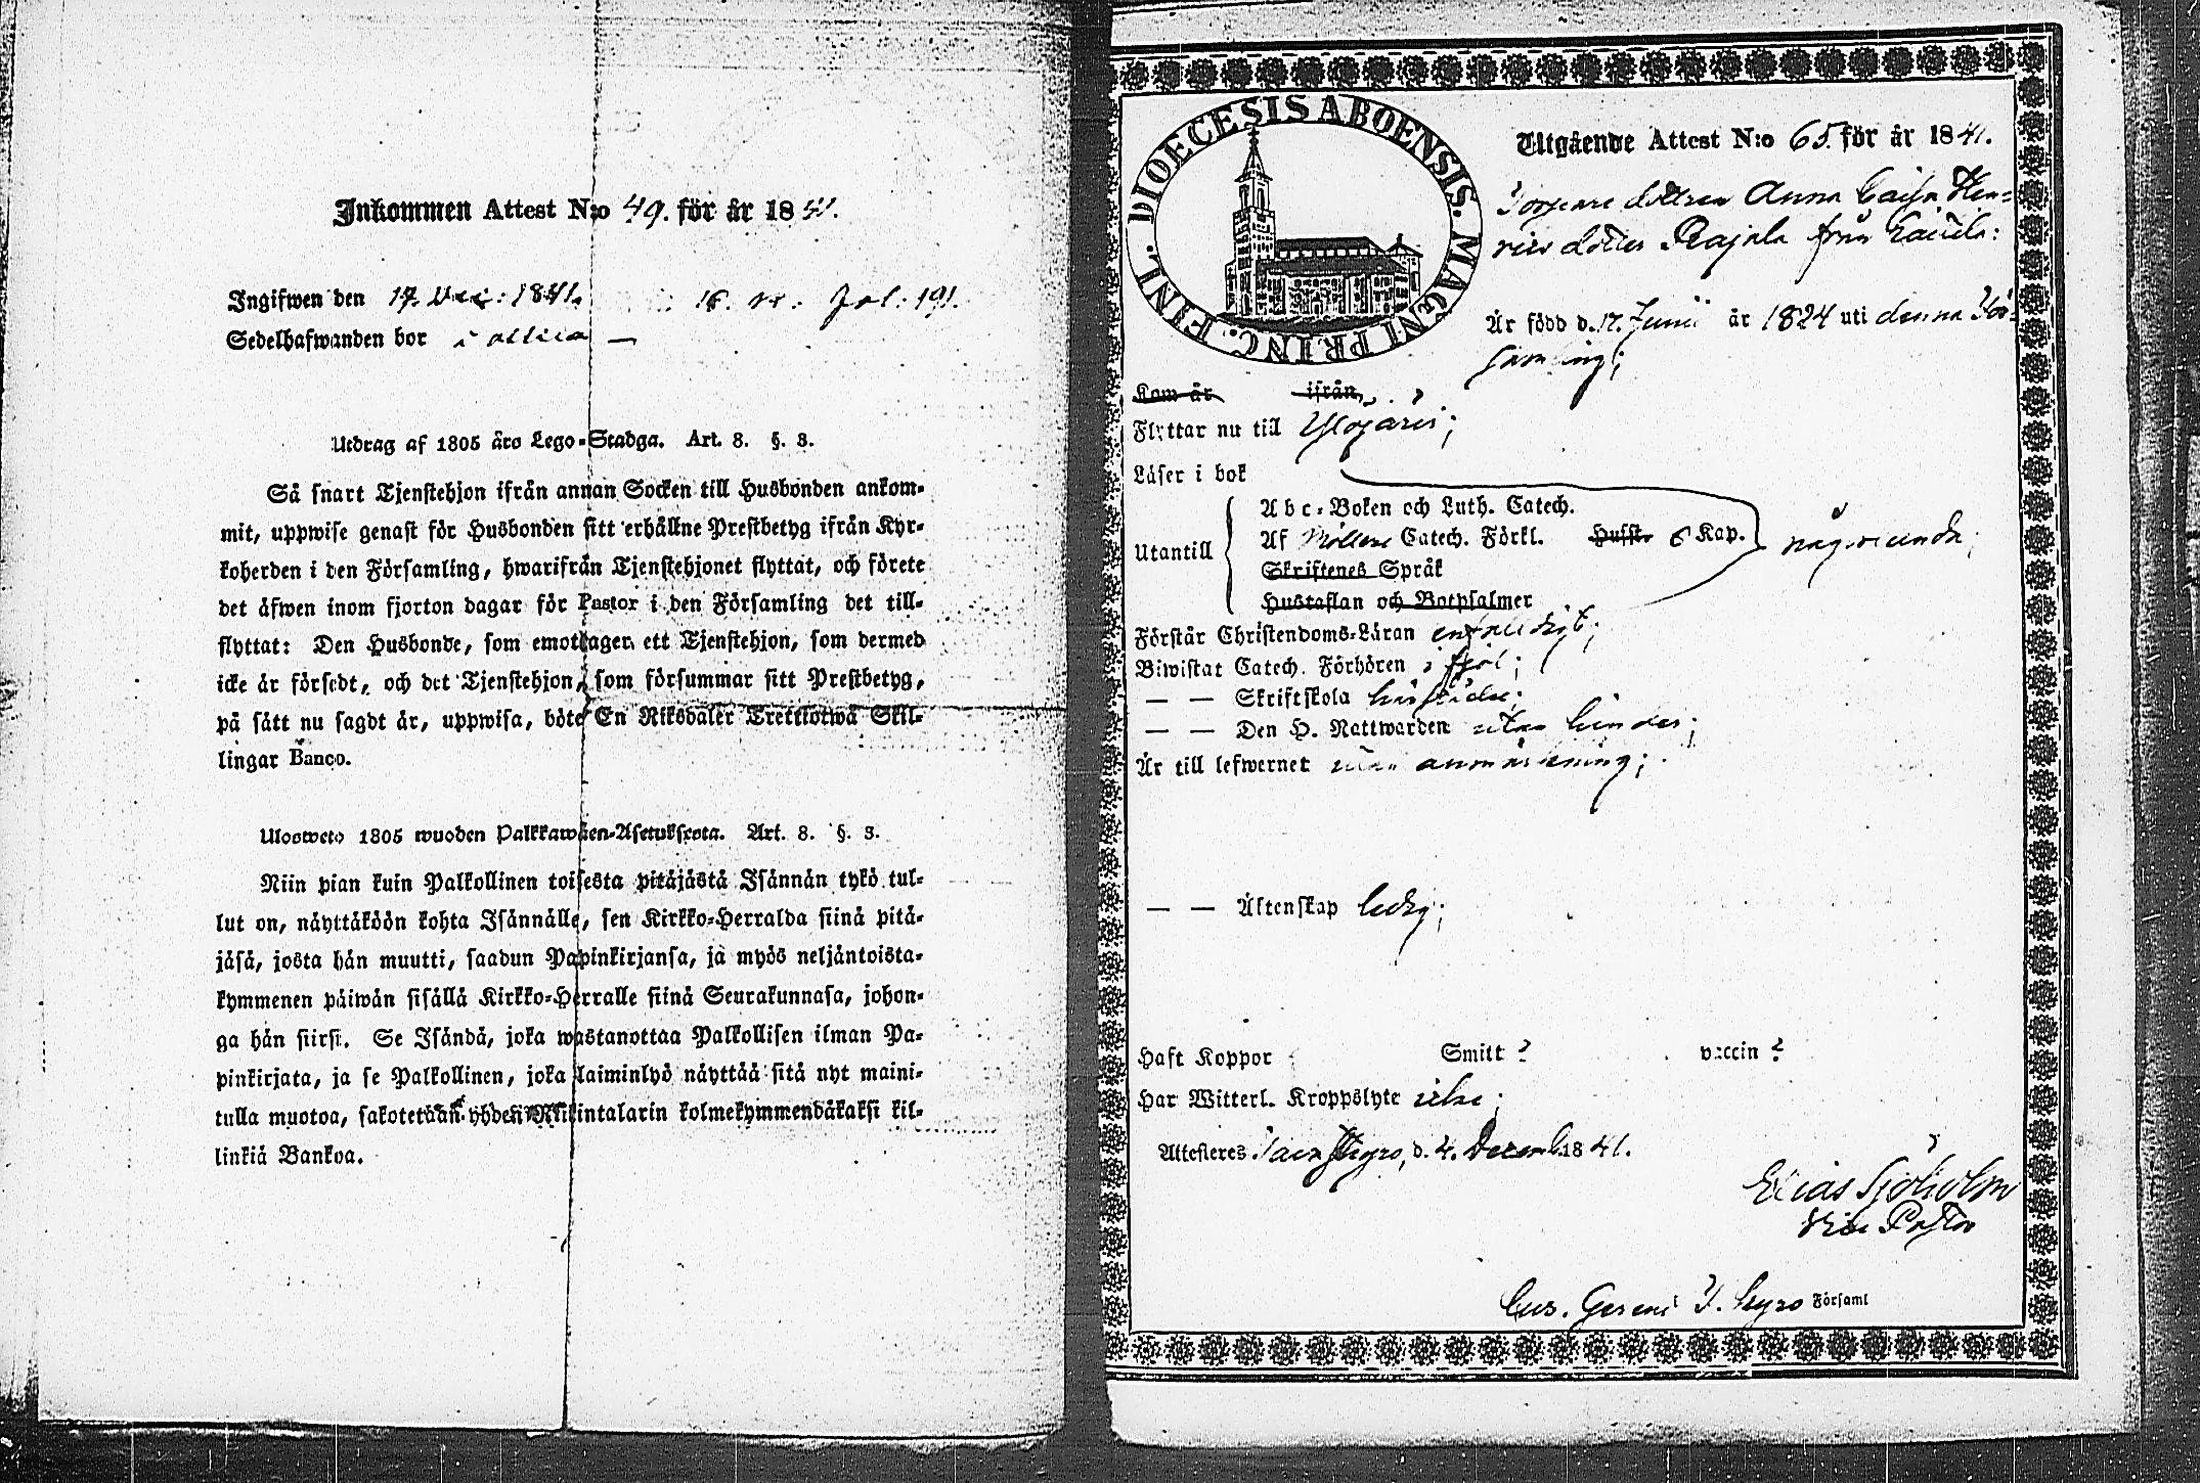 Inkommen Attest N:o 49. för år 1841.
Ingifwen den 17. Dec: 1841.
Sedelhafwanden bor i
Utdrag af 1805 års Lego-Stadga. Art. 8. §. 3.
Så snart Tjenstehjon ifrån annan Socken till Husbonden ankom-
mit, uppwise genast för Husbonden sitt erhållne Prestbetyg ifrån Kyr-
koherden i den Församling, hwarifrån Tjenstehjonet flyttat, och förete
det äfwen inom fjorton dagar för Pastor i den Församling det till-
flyttat: Den Husbonde, som emottager ett Tjenstehjon, som dermed
icke är försedt, och det Tjenstehjon, som försummar sitt Prestbetyg,
på sätt nu sagdt är, uppwisa, böte En Riksdaler Trettiotwå Skil-
lingar Banco.
Ulosweto 1805 wuoden Palkkawäen-Asetuksesta. Art. 8. §. 3.
Niin pian kuin Palkollinen toisesta pitäjästä Isännän tykö tul-
lut on, näyttäköön kohta Isännälle, sen Kirkko-Herralda siinä pitä-
jäsä, josta hän muutti, saadun Papinkirjansa, ja myös neljäntoista-
kymmenen päiwän sisällä Kirkko-Herralle siinä Seurakunnasa, johon-
ga hän siirsi. Se Isändä, joka wastanottaa Palkollisen ilman Pa-
pinkirjata, ja se Palkollinen, joka laiminlyö näyttää sitä nyt maini-
tulla muotoa, sakotetaan yhden Riikintalarin kolmekymmendäkaksi kil-
linkiä Bankoa.
DIOECESIS ABOENSIS. MAGNI PRINC. FINL.
Utgående Attest N:o 65. för år 1841.
Torpare dottren Anna Caisa Hen-
rics dotter Rajala från
Är född d. 17. Junii år 1824 uti denna För-
samling;
Kom år ifrån
Flyttar nu till Ylöjärvi;
Läser i bok
Utantill
Abc-Boken och Luth. Catech.
Af Möllers Catech. Förkl. Husst. 6 Kap. någorlunda;
Skriftenes Språk
Hustaflan och Botpsalmer
Förstår Christendoms-Läran enfaldigt;
Biwistat Catech. Förhören i fjol;
— — Skriftskola
— — Den H. Nattwarden utan hinder;
Är till lefwernet utan anmärkning;
— — Äktenskap ledig;
Haft Koppor Smitt ? vaccin ?
Har Witterl. Kroppslyte icke;
Attesteres d. 4. Decemb. 1841.
Elias Sjöholm
Vice Pastor
Församl